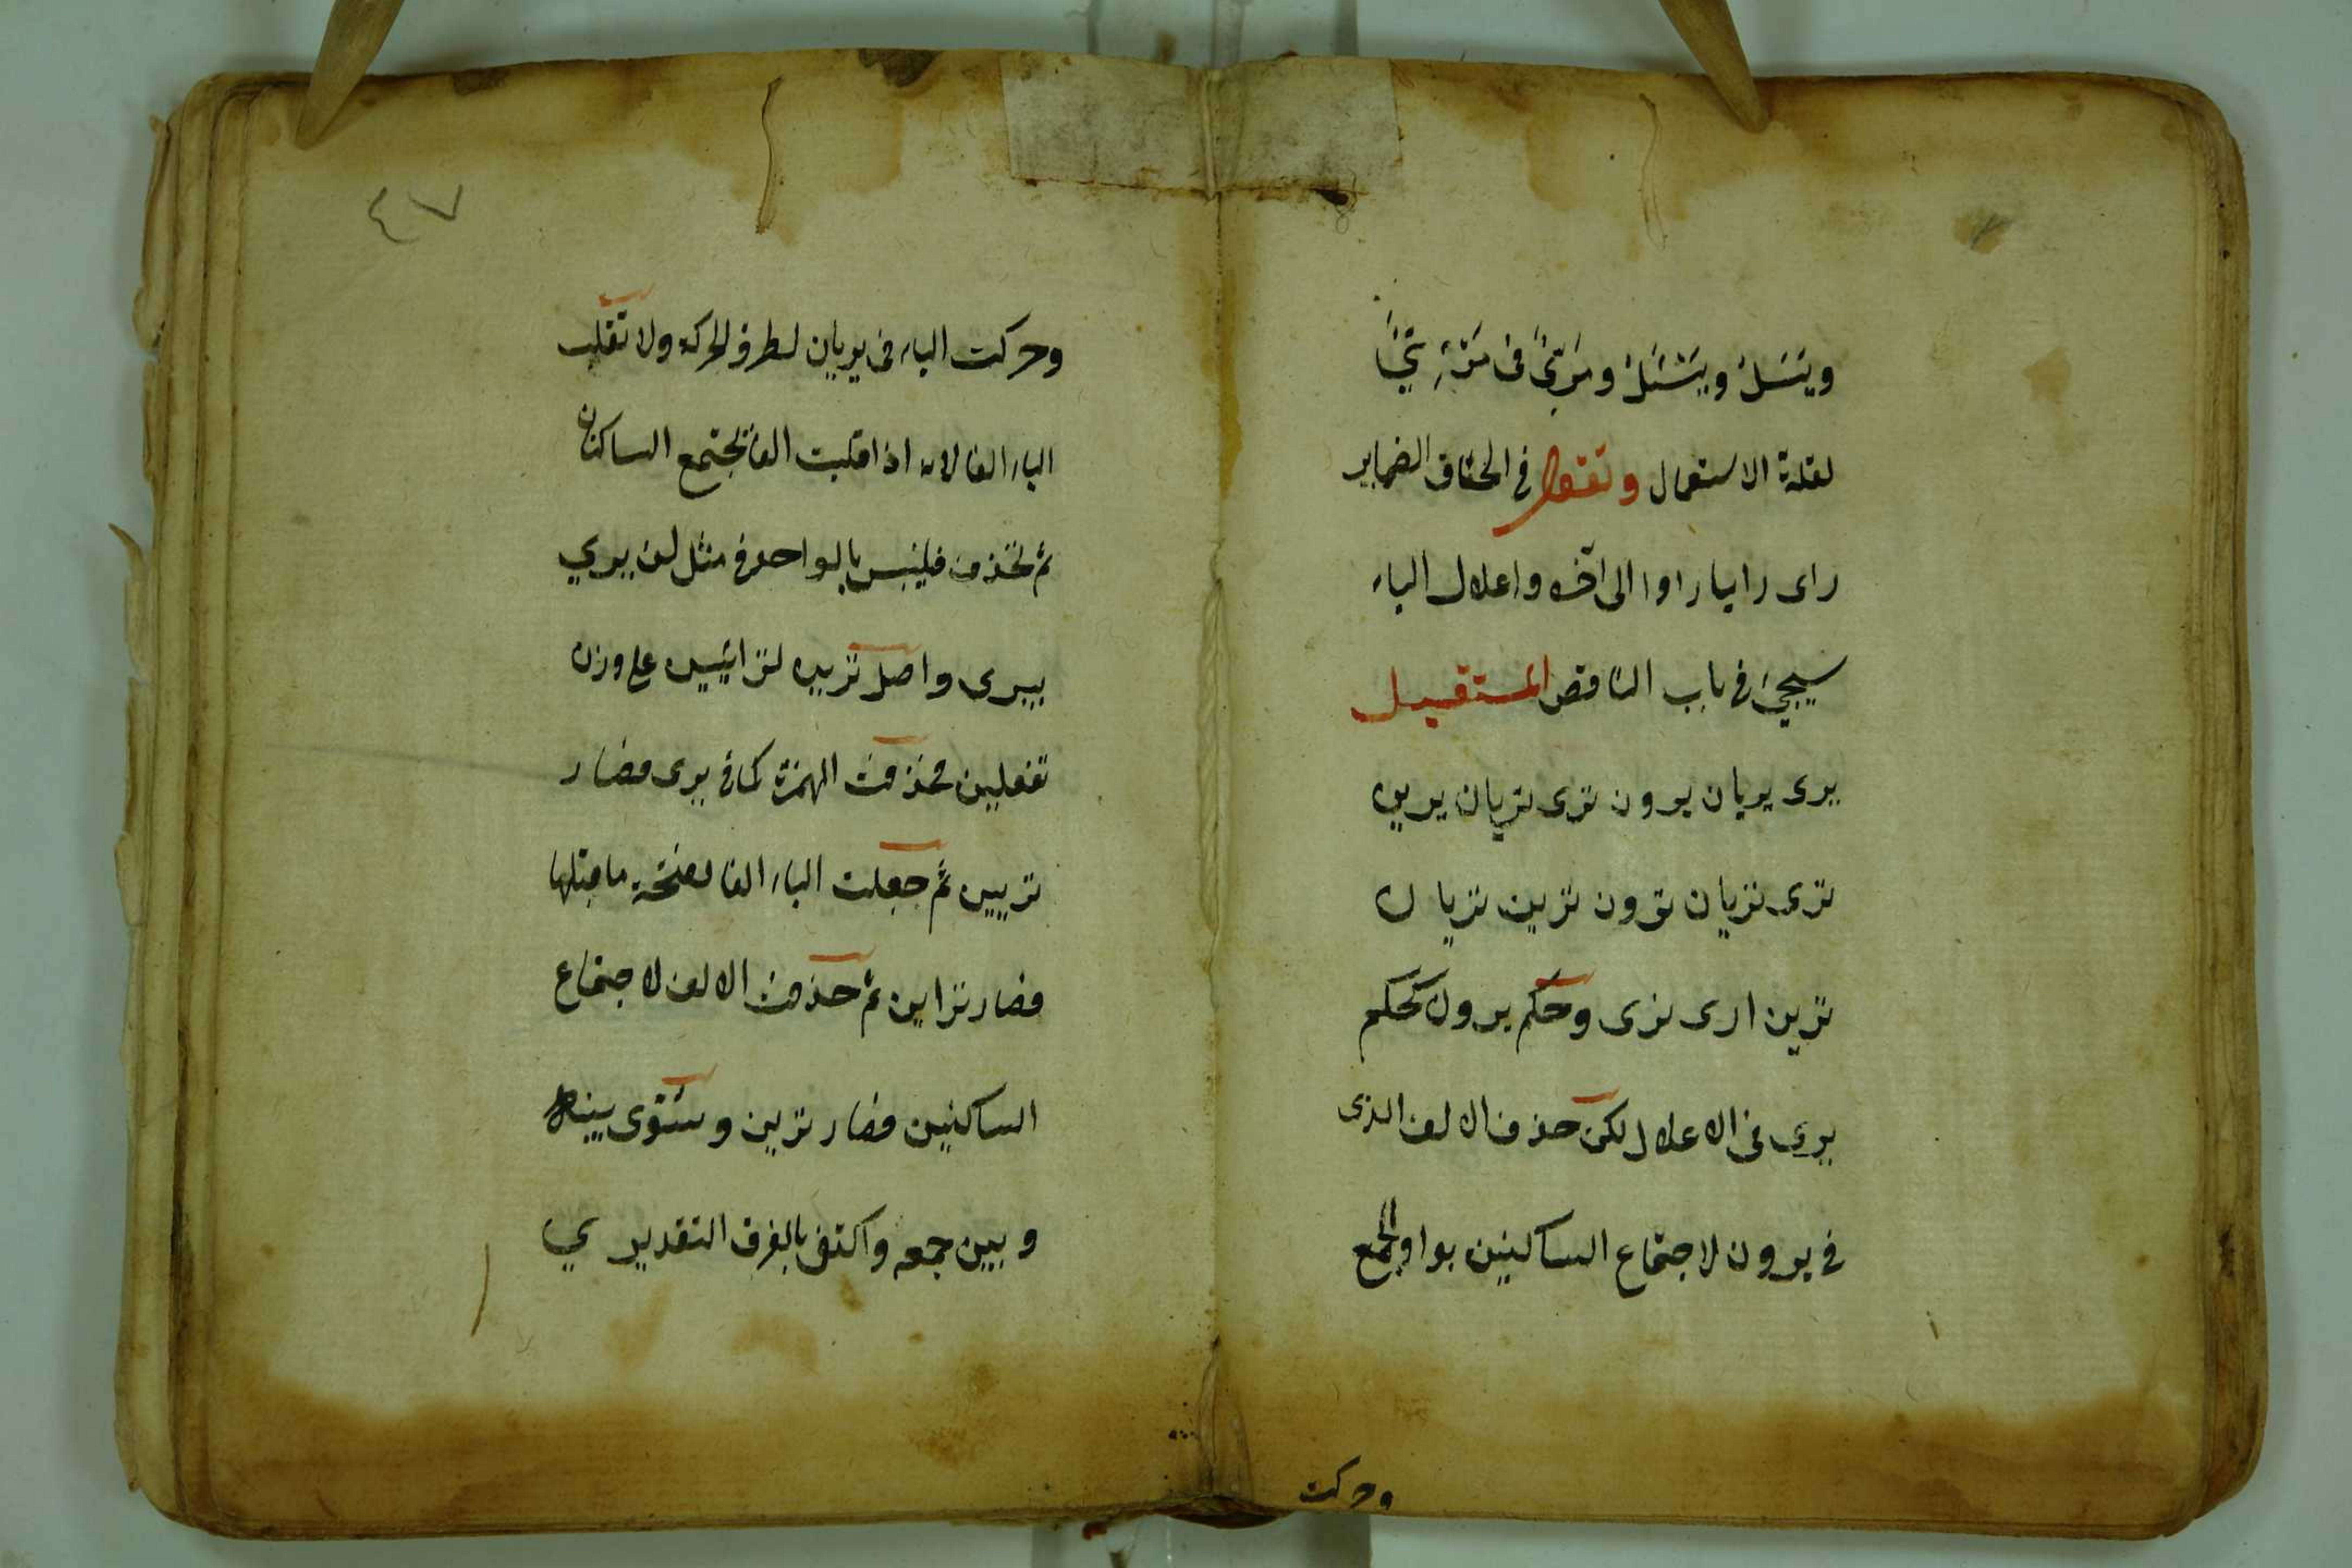 وينسل ويسئل ومرئ فى
لقلة الاستعمال وتقول فى الحاق الضماير
راى رايا راوا الى آخره واعلال الياء
سيجئ فى باب الناقص المستقبل
يرى يريان يرون ترى تريان يرين
ترى تريان ترون ترين تريان
ترين ارى نرى وحكم يرون كحكم
يرى فى الاعلال لكن حذف الالف الذى
فى يرون لاجتماع الساكنين بواو الجمع
وحركت
٤٧
وحركت الياء فى يريان لطرو الحركة ولا تقلب
الياء الفا لانه اذا قلبت الفا يجتمع الساكنان
ثم تحذف فيلتبس بالواحد فى مثل لن يري
يرى واصل ترين ترايين على وزن
تفعلين فحذفت الهمزة كما فى يرى فصار
تريين ثم جعلت الياء الفا لفتحة ما قبلها
فصار تراين ثم حذفت الالف لاجتماع
الساكنين فصار ترين وسُوّى بينه
وبين جمعه واكتفى بالفرق التقديري